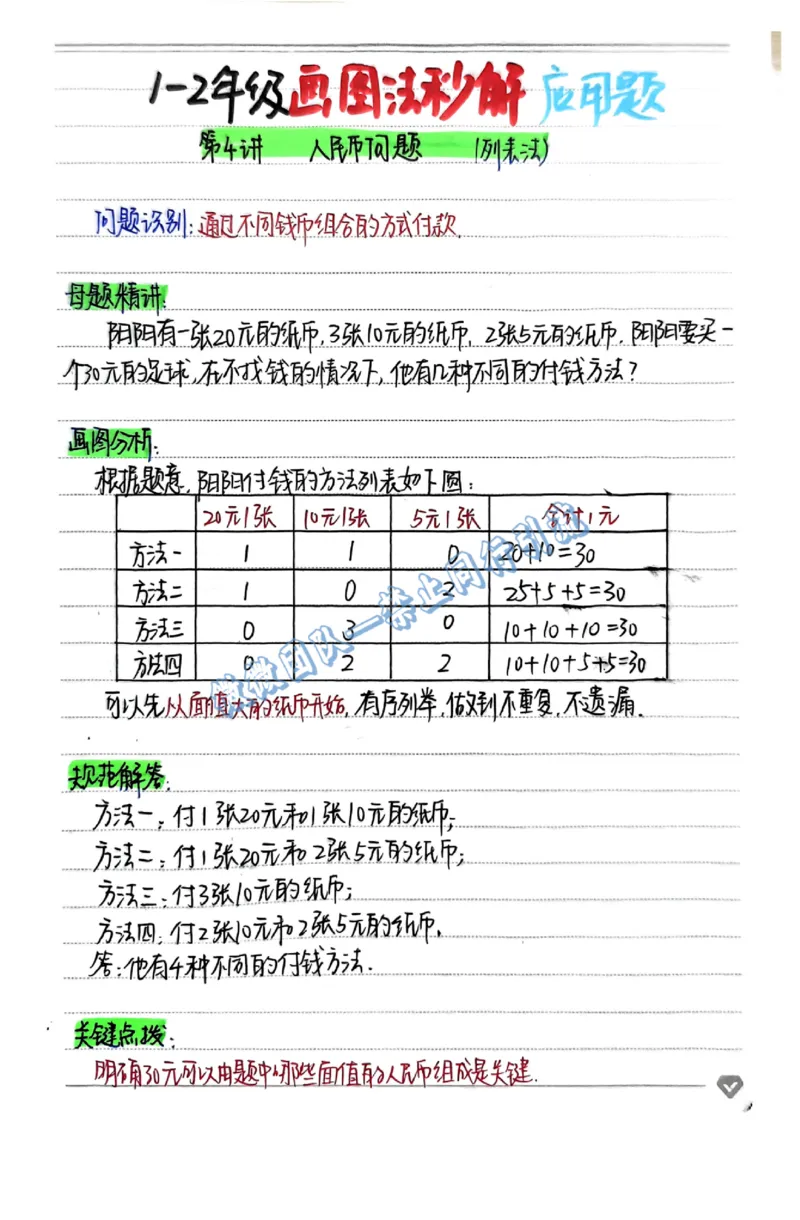 1-2年级画图法秒解应用题
第4讲 人民币问题 (列表法)
问题识别:通过不同钱币组合的方式付款.
母题精讲:
阳阳有一张20元的纸币,3张10元的纸币, 2张5元的纸币.阳阳要买一
个30元的足球,在不找钱的情况下,他有几种不同的付钱方法?
画图分析:
根据题意,阳阳付钱的方法列表如下图:
20元/张 10元/张 5元/张 合计/元
方法一 1 1 0 20+10=30
方法二 1 0 2 25+5+5=30
方法三 0 3 0 10+10+10=30
方法四 0 2 2 10+10+5+5=30
可以先从面值大的纸币开始,有序列举,做到不重复,不遗漏.
规范解答:
方法一:付1张20元和1张10元的纸币;
方法二:付1张20元和2张5元的纸币;
方法三:付3张10元的纸币;
方法四:付2张10元和2张5元的纸币.
答:他有4种不同的付钱方法.
关键点拨:
明确30元可以由题中哪些面值的人民币组成是关键.